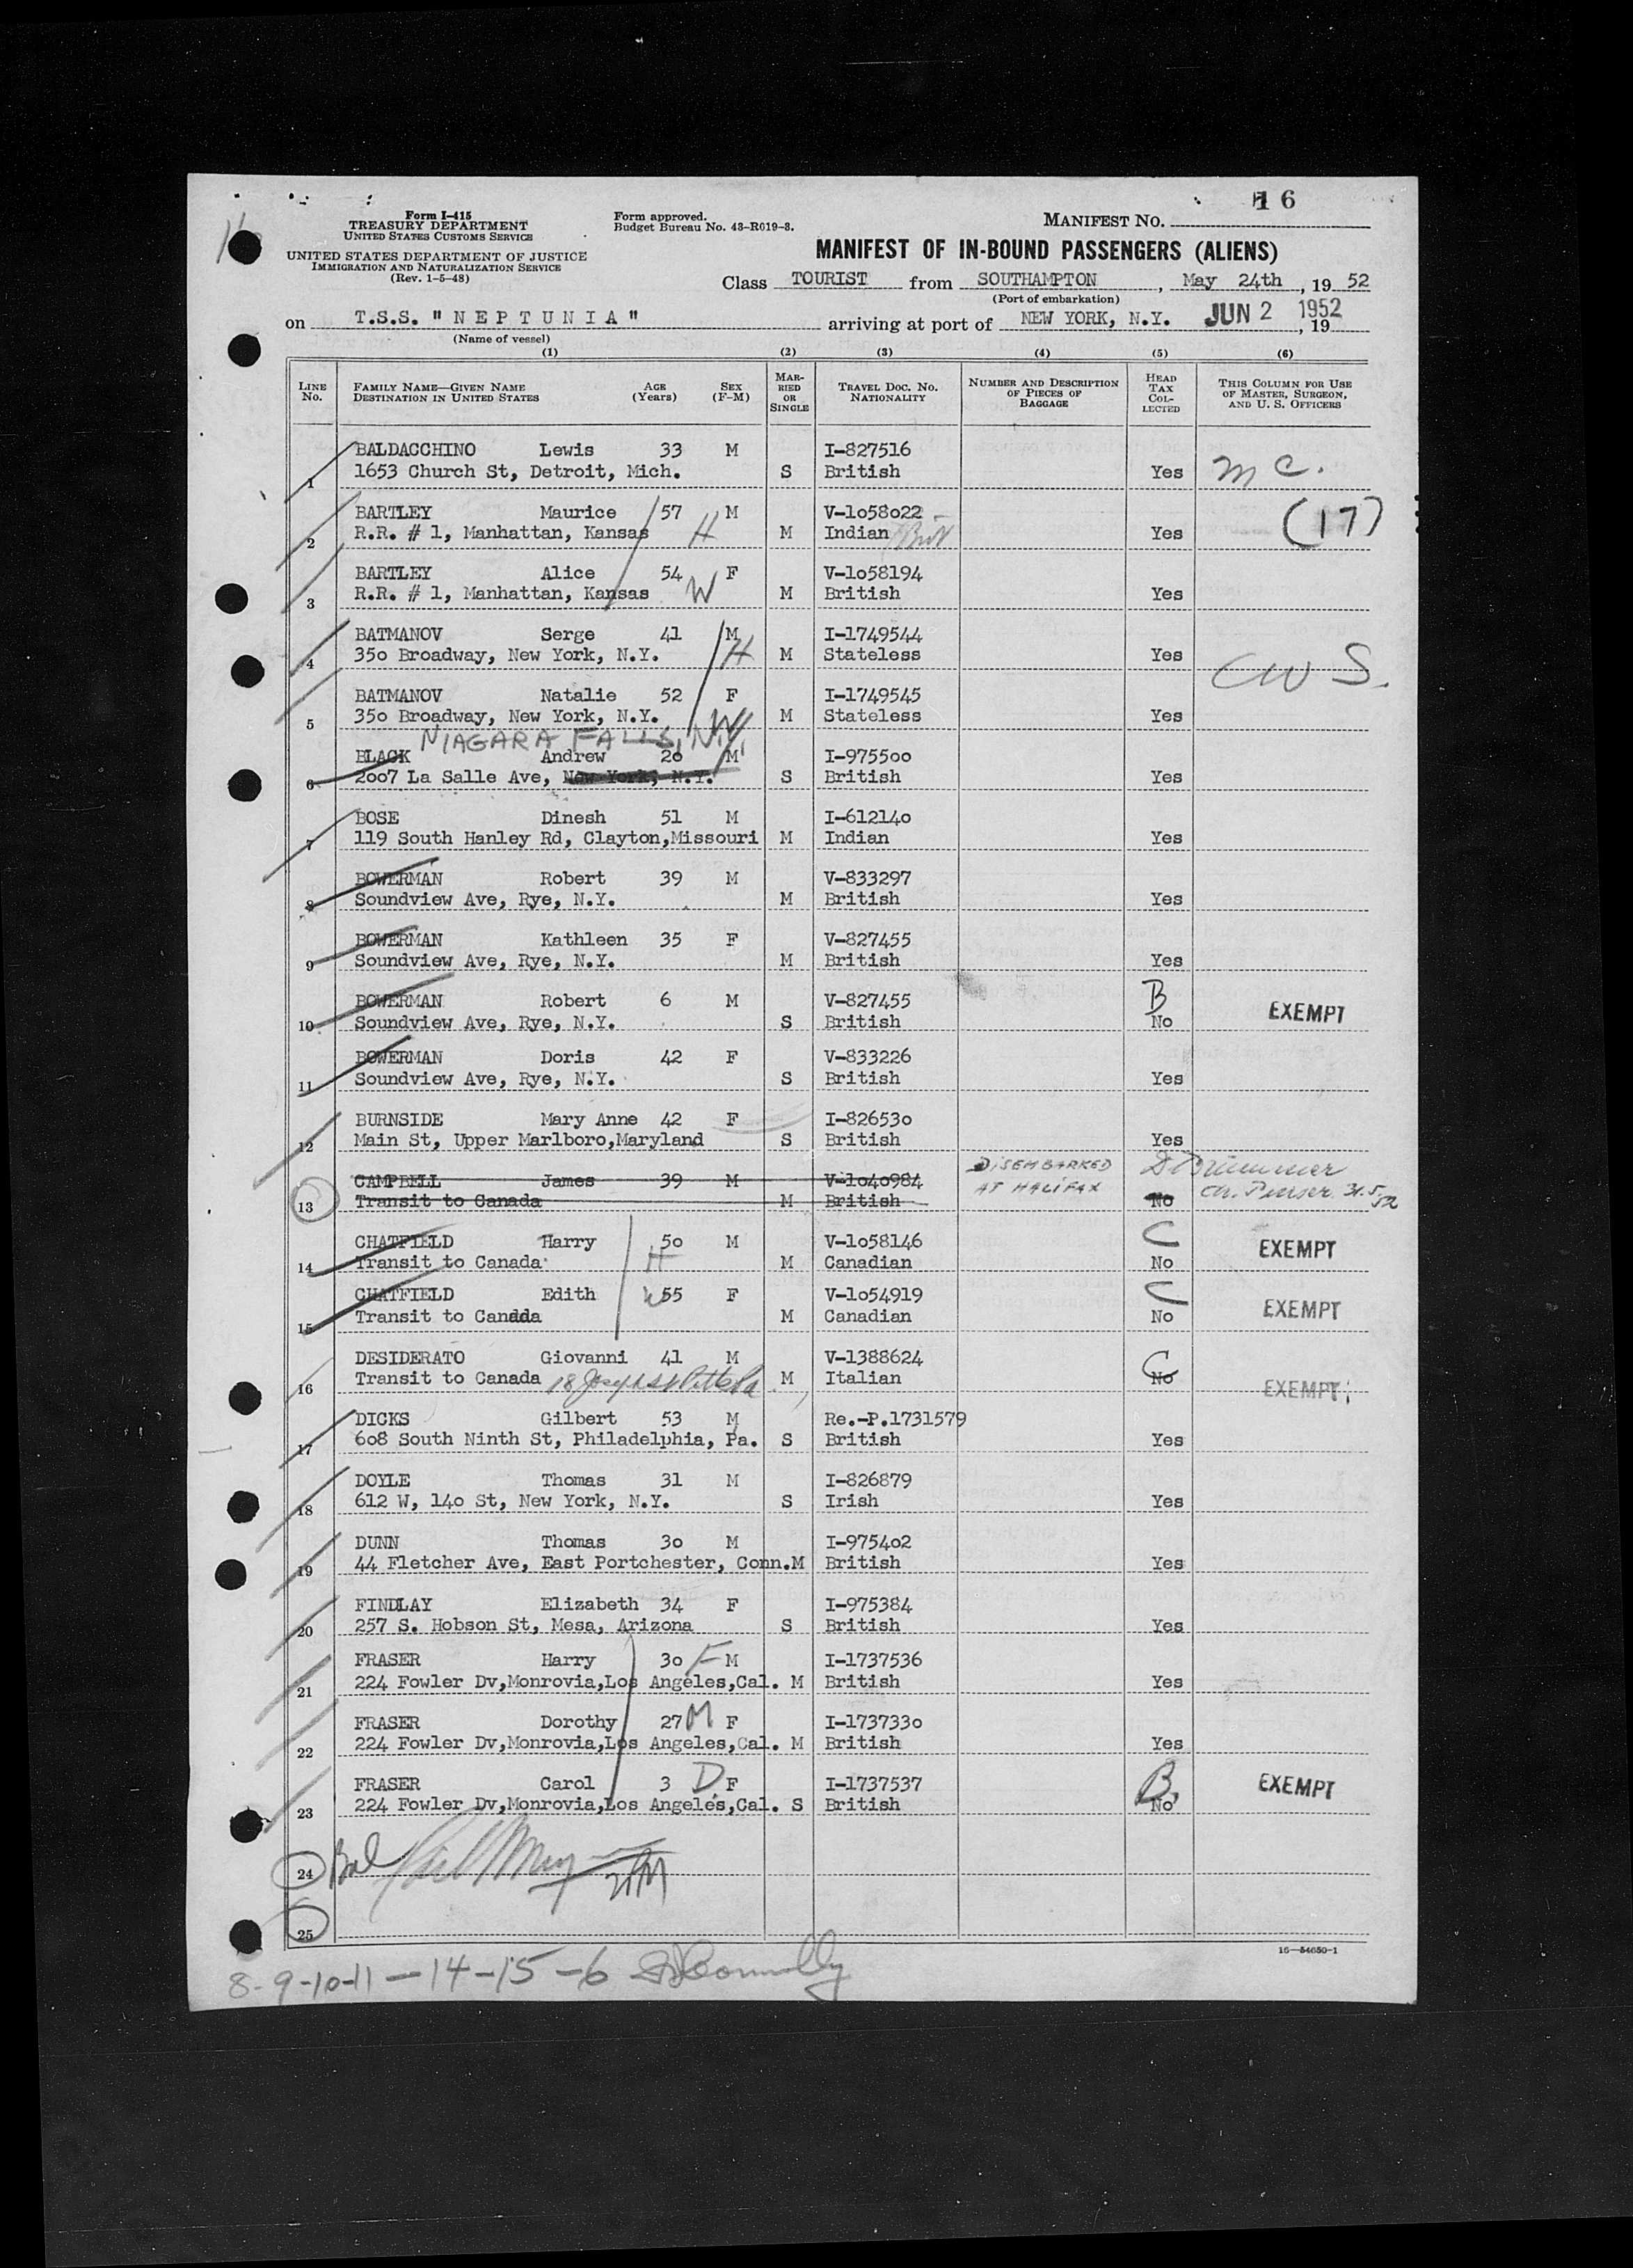 16
Form I-415
TREASURY DEPARTMENT
UNITED STATES CUSTOMS SERVICE
UNITED STATES DEPARTMENT OF JUSTICE
IMMIGRATION AND NATURALIZATION SERVICE
(Rev. 1-5-48)
Form approved.
Budget Bureau No. 43-R019-3.
MANIFEST No.
MANIFEST OF IN-BOUND PASSENGERS (ALIENS)
Class TOURIST from SOUTHAMPTON, May 24th, 19 52
(Port of embarkation)
on T.S.S. "NEPTUNIA" arriving at port of NEW YORK, N.Y. JUN 2 1952, 19
(Name of vessel)
(1) (2) (3) (4) (5) (6)
LINE No. FAMILY NAME—GIVEN NAME DESTINATION IN UNITED STATES AGE (Years) SEX (F-M) MARRIED OR SINGLE TRAVEL DOC. No. NATIONALITY NUMBER AND DESCRIPTION OF PIECES OF BAGGAGE HEAD TAX COLLECTED THIS COLUMN FOR USE OF MASTER, SURGEON, AND U. S. OFFICERS
BALDACCHINO Lewis 33 M I-827516
1 1653 Church St, Detroit, Mich. S British Yes m c.
BARTLEY Maurice 57 M V-1o58o22 (17)
2 R.R. # 1, Manhattan, Kansas H M Indian Brit Yes
BARTLEY Alice 54 F V-1o58194
3 R.R. # 1, Manhattan, Kansas W M British Yes
BATMANOV Serge 41 M I-1749544
4 35o Broadway, New York, N.Y. H M Stateless Yes CWS.
BATMANOV Natalie 52 F I-1749545
5 35o Broadway, New York, N.Y. W M Stateless Yes
NIAGARA FALLS, N.Y.
BLACK Andrew 2o M I-9755oo
6 2oo7 La Salle Ave, New York, N.Y. S British Yes
BOSE Dinesh 51 M I-61214o
7 119 South Hanley Rd, Clayton,Missouri M Indian Yes
BOWERMAN Robert 39 M V-833297
8 Soundview Ave, Rye, N.Y. M British Yes
BOWERMAN Kathleen 35 F V-827455
9 Soundview Ave, Rye, N.Y. M British Yes
BOWERMAN Robert 6 M V-827455 B EXEMPT
10 Soundview Ave, Rye, N.Y. S British No
BOWERMAN Doris 42 F V-833226
11 Soundview Ave, Rye, N.Y. S British Yes
BURNSIDE Mary Anne 42 F I-82653o
12 Main St, Upper Marlboro,Maryland S British Yes
CAMPBELL James 39 M V-1o4o984 DISEMBARKED
13 Transit to Canada M British AT HALIFAX No Ch. Purser 31.5.52
CHATFIELD Harry 5o M V-1o58146 C EXEMPT
14 Transit to Canada H M Canadian No
CHATFIELD Edith W 55 F V-1o54919 C EXEMPT
15 Transit to Canada M Canadian No
DESIDERATO Giovanni 41 M V-1388624 C
16 Transit to Canada 18 Joseph St M Italian No EXEMPT
DICKS Gilbert 53 M Re.-P.1731579
17 6o8 South Ninth St, Philadelphia, Pa. S British Yes
DOYLE Thomas 31 M I-826879
18 612 W, 14o St, New York, N.Y. S Irish Yes
DUNN Thomas 3o M I-9754o2
19 44 Fletcher Ave, East Portchester, Conn. M British Yes
FINDLAY Elizabeth 34 F I-975384
20 257 S. Hobson St, Mesa, Arizona S British Yes
FRASER Harry 3o F M I-1737536
21 224 Fowler Dv,Monrovia,Los Angeles,Cal. M British Yes
FRASER Dorothy 27 M F I-173733o
22 224 Fowler Dv,Monrovia,Los Angeles,Cal. M British Yes
FRASER Carol 3 D F I-1737537 B. EXEMPT
23 224 Fowler Dv,Monrovia,Los Angeles,Cal. S British No
24 Bal
25
16—54650-1
8-9-10-11-14-15-6